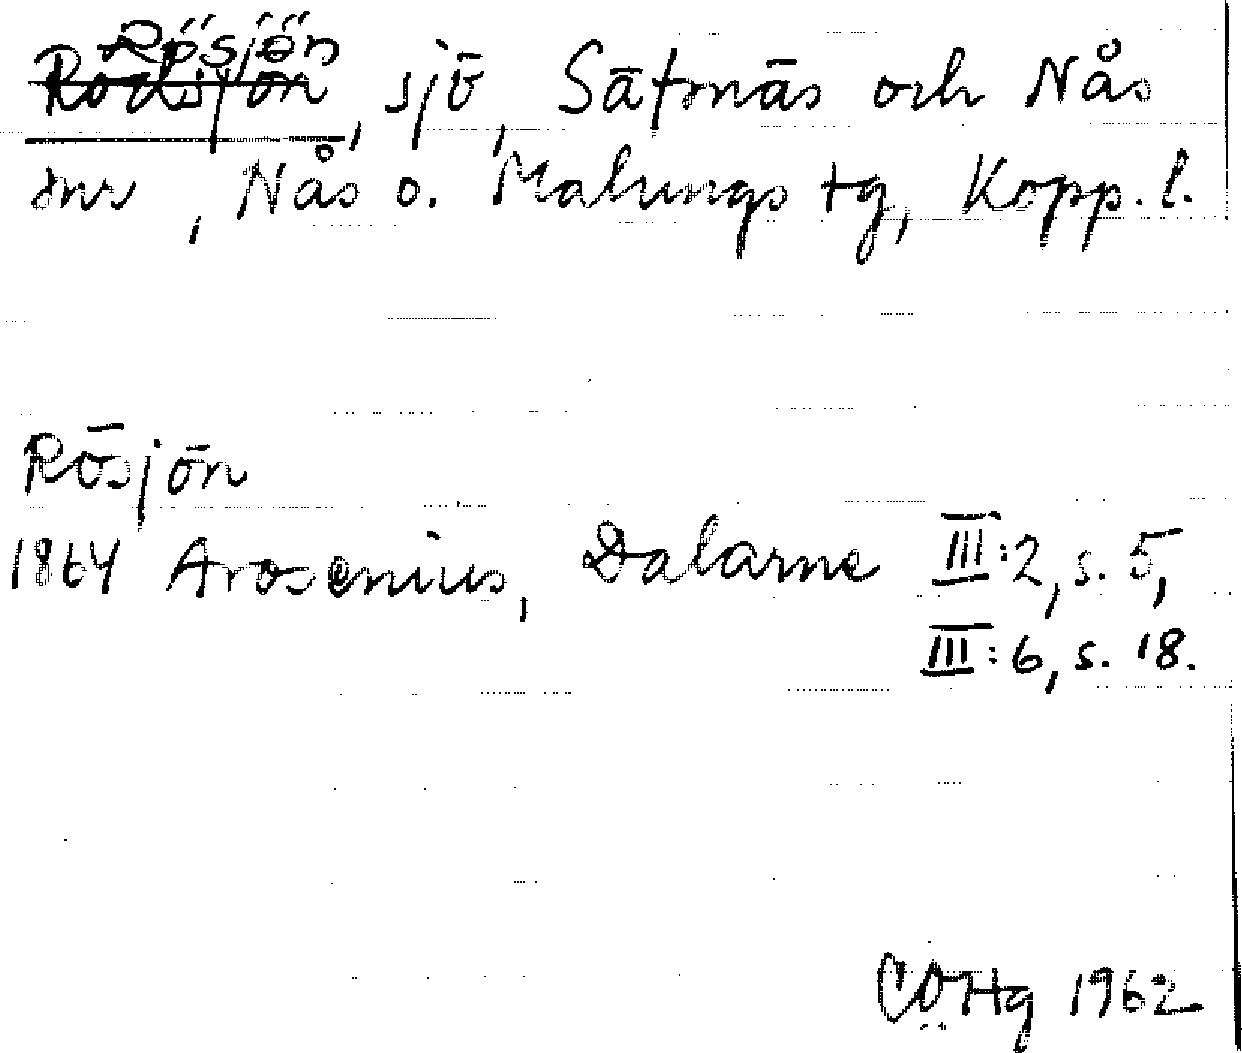 Rösjön
Rodsjön, sjö, Säfsnäs och Nås
snr, Nås o. Malungs tg, Kopp. l.
Rösjön
1864 Arosenius, Dalarne III:2, s. 5,
III:6, s. 18.
CÖHg 1962